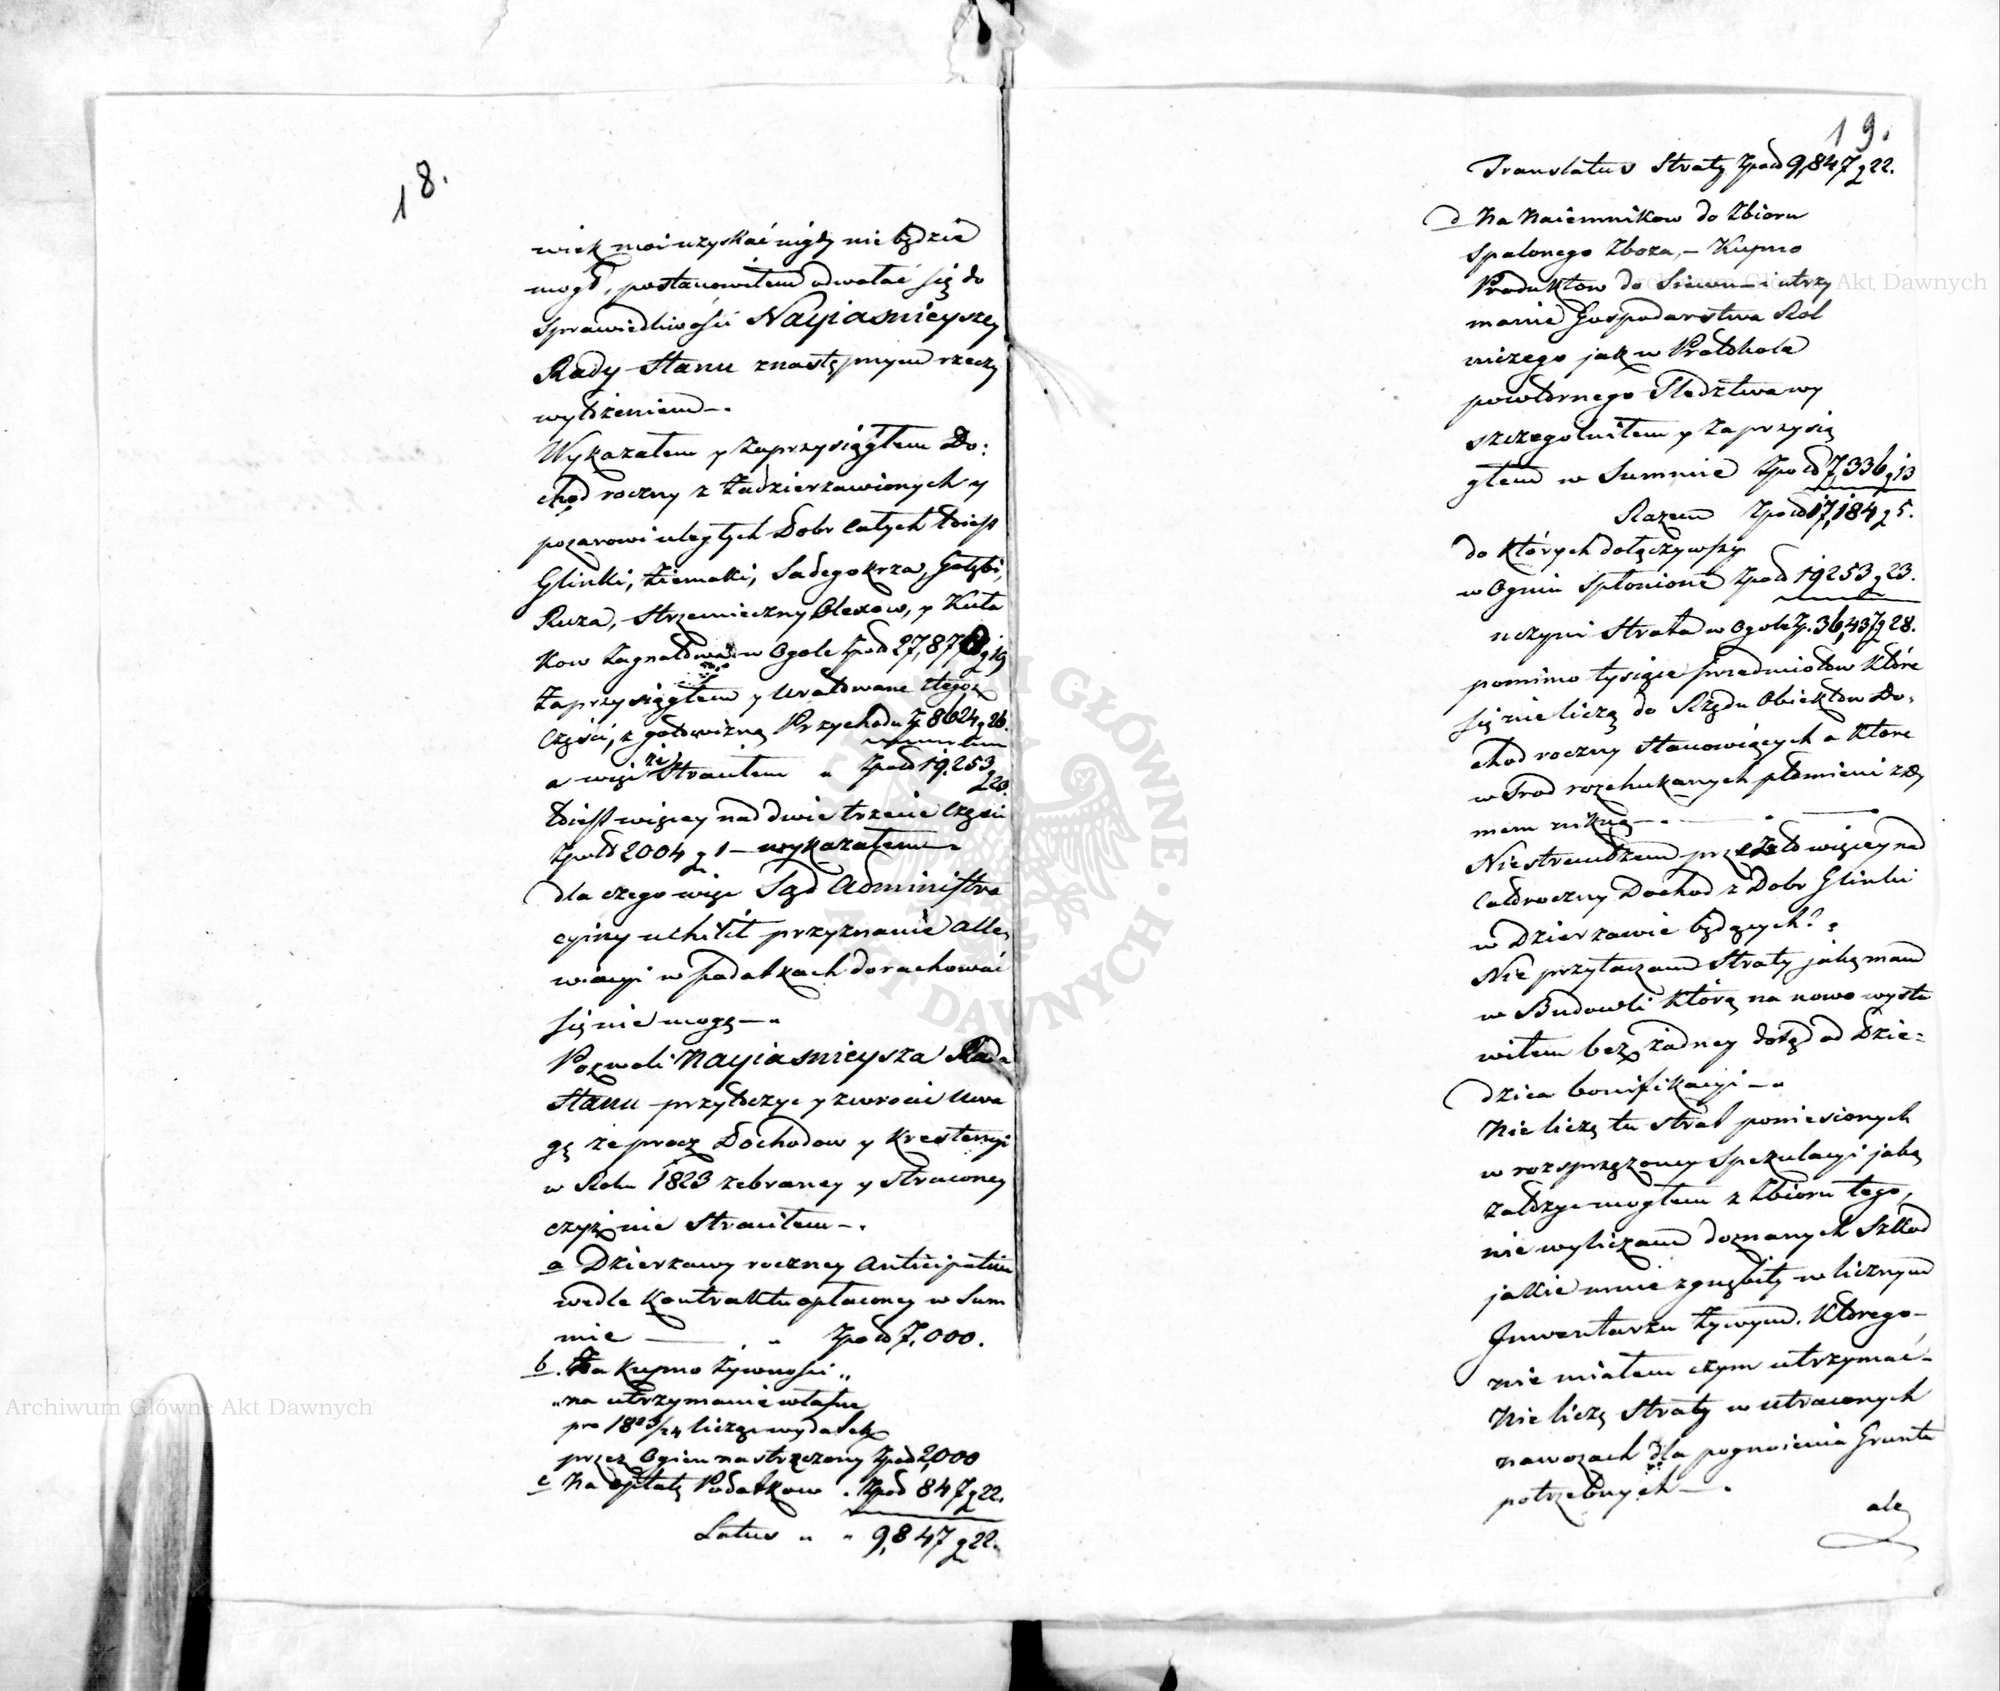 18.
wiek moi uzyskać nigdy nie będzie
mogł, postanowiłem odwołać się do
Sprawiedliwości Nayiasnieyszey
Rady Stanu z następnym rzeczy
wyłożeniem.
Wykazałem y zaprzysiągłem Do:
chod roczny z zadzierzawionych y
pozarowi uległych Dobr całych to iest
Glinki, Ziemaki, Sadegokrza, Gołębi,
Ruza, Strzemieczny Olexow, y Kuła
kow w Ogole Zpold 27,878 g 19
zaprzysiągłem y uratowane tegoż
Części, z gotowizną Przychodu Zł. 8624 g 26.
a więc straciłem „ Zpold 19,253
g 23.
to iest więcey nad dwie trzecie Części
Zpold 2004 g 1 – wykazałem.
dla czego więc Sąd Administra
cyiny uchilił przyznanie Alle
wiacyi w podatkach dorachować
się nie mogę –„
Pozwoli Nayiasnieysza Rada
Stanu przytoczyć y zwrocić uwa
gę ze procz Dochodow y Krestencyi
w Roku 1823 zebraney y straconey
czyż nie straciłem –.
a Dzierzawy roczney Anticipative
wedle Kontraktu opłaconey w Sum
mie — „ Zpold 7,000.
b. Za Kupno Zywności „
„ na utrzymanie własne
pro 1823/24 licząc wydatek
przez Ogien nastręczony Zpold 2,000
c Na opłatę Podatkow . Zpold 847 g 22.
Latus „ „ 9,847 g 22.
19.
Translatus Straty Zpold 9,847 g 22.
d Na Naiemnikow do Zbioru
Spalonego Zboza, – Kupno
Produktow do Siewu – i utrzy
manie Gospodarstwa Rol
niczego jak w Protokole
powtornego Sledztwa wy
szczegolniłem y zaprzysią
głem w Summie Zpold 7,336 g 13
Razem Zpold 17,184 g 5.
do których dołączywszy
w Ogniu spłonione Zpold 19253 g 23.
uczyni Strata w Ogole Zp. 36,437 g 28.
pomimo tysiące przedmiotow które
się nie liczą do Rzędu Obiektow Do.
chod roczny Stanowiących a które
w srod rozchukanych płomieni z dy
mem nikną –
Nie straciłżem przeto więcey nad
całoroczny Dochod z Dobr Glinki
w Dzierzawie będących?
Nie przytaczam Straty jaką mam
w Budowli którą na nowo wysta
wiłem bez żadney dotąd od Dzie-
dzica bonifikacyi –„
Nie liczę tu strat poniesionych
w rozsprzężoney Spekulacyi jaką
załozyc mogłem z Zbioru tego,
nie wyliczam doznanych Szkod
jakie mnie zgnębiły w licznym
Inwentarzu żywym. Którego –
nie miałem czym utrzymać –
Nie liczę Straty w utraconych
nawozach dla pognoienia Gruntu
potrzebnych –.
ale
Archiwum Główne Akt Dawnych
Archiwum Główne Akt Dawnych
ARCHIWUM GŁÓWNE AKT DAWNYCH